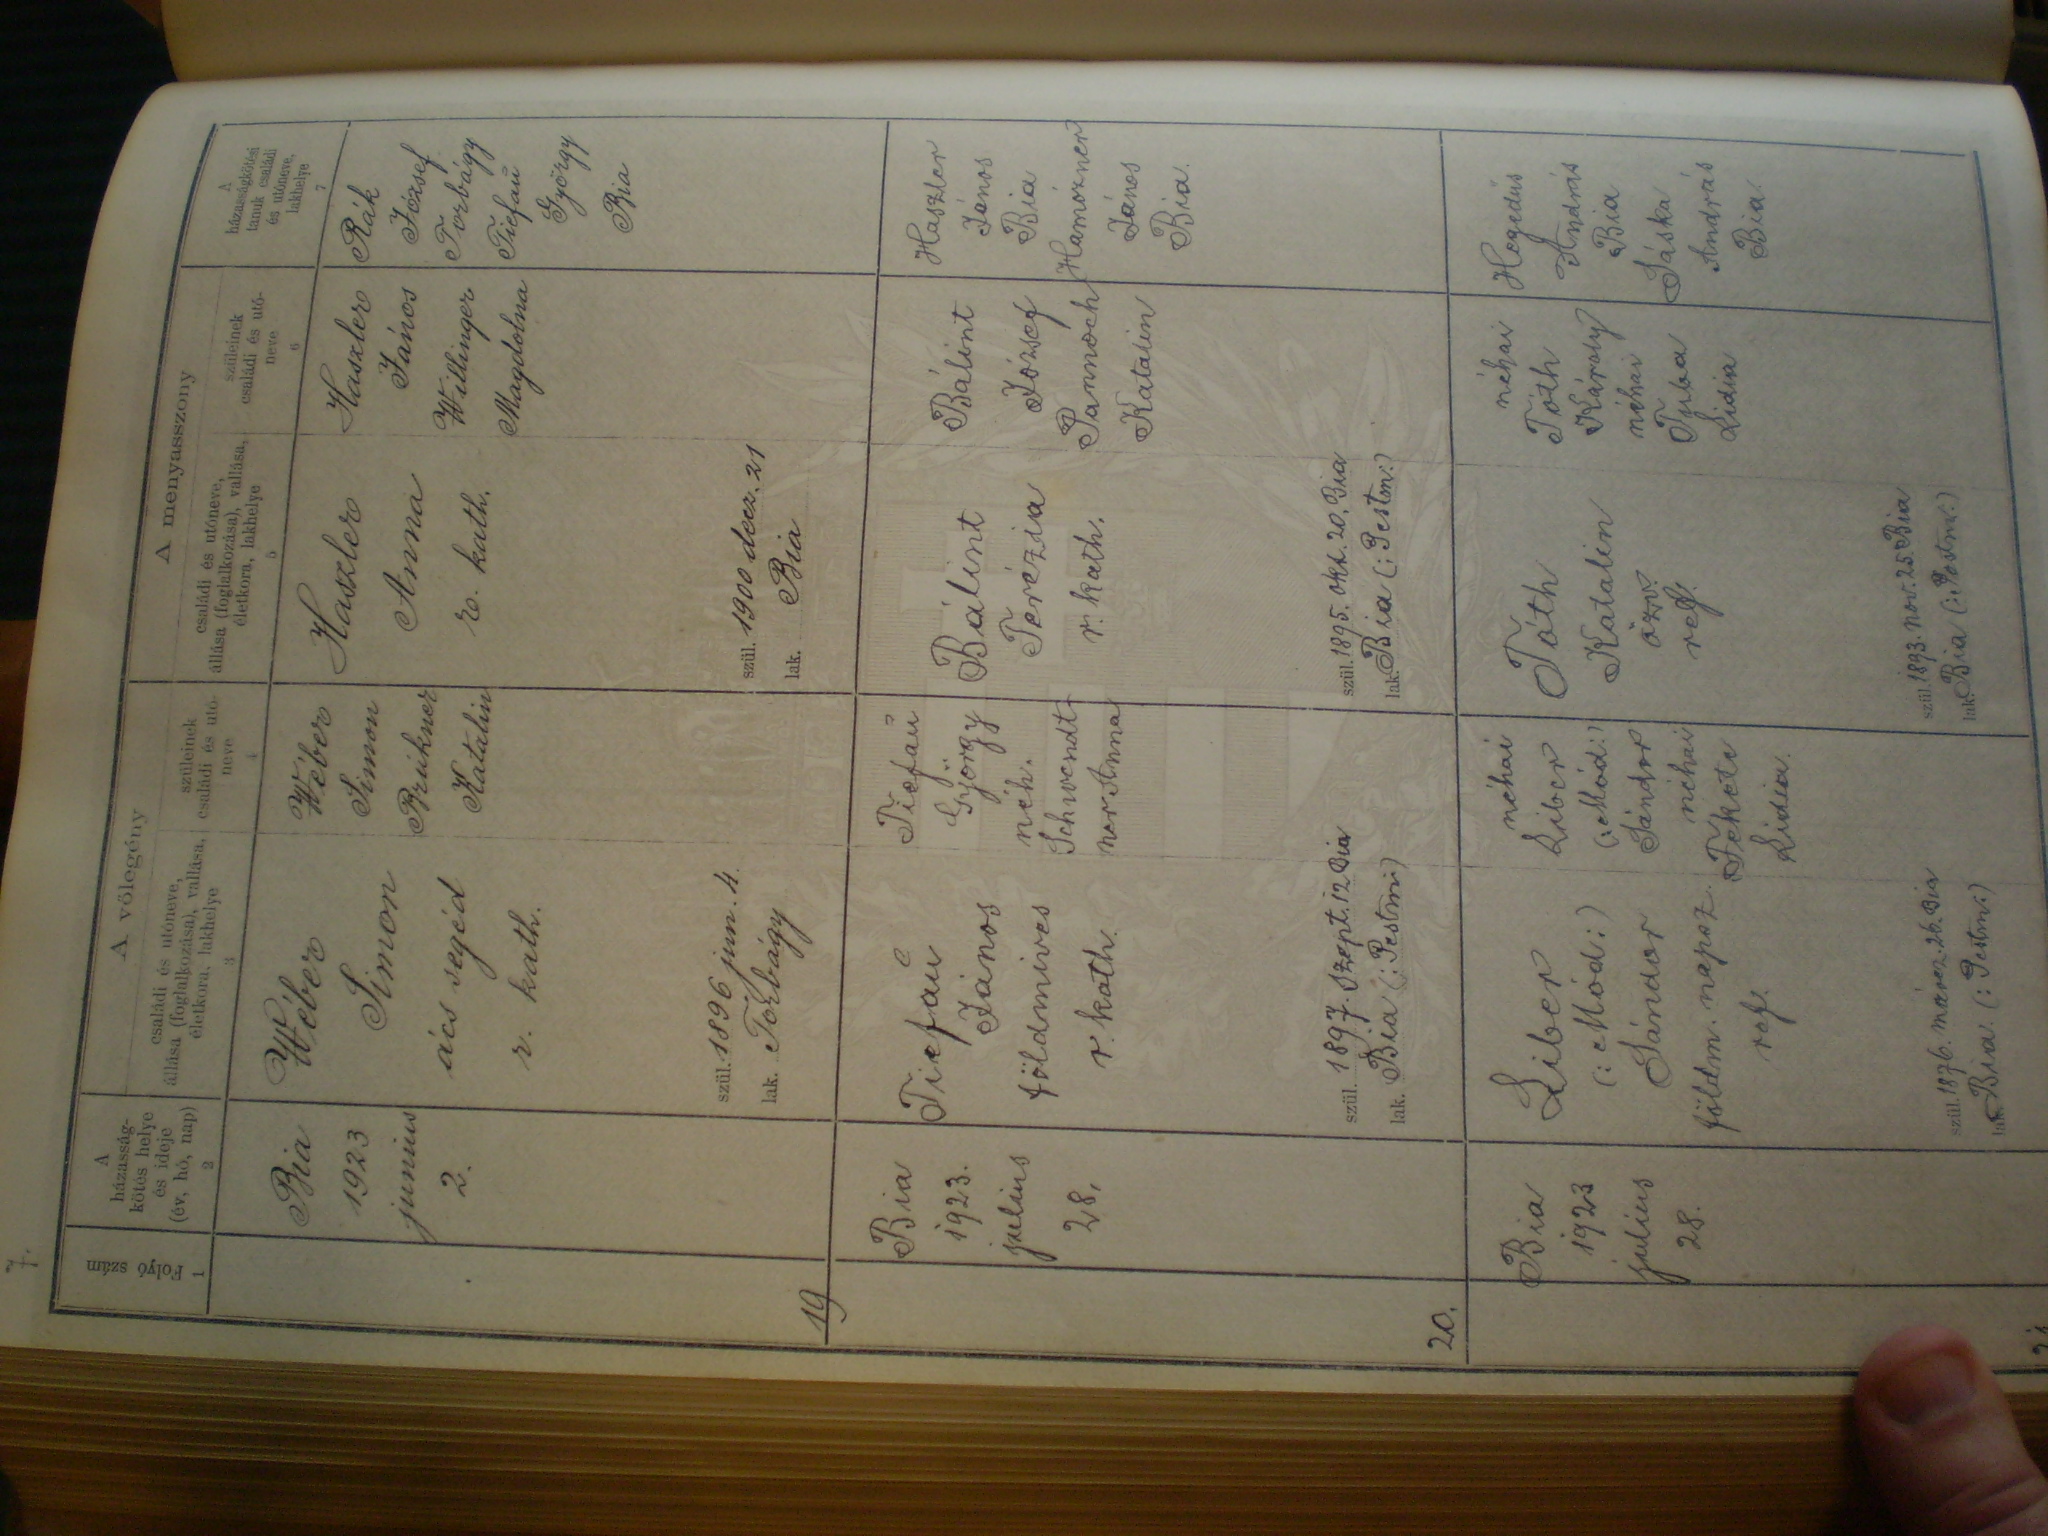 7.
Folyó szám
1
A
házasság-
kötés helye
és ideje
(év, hó, nap)
2
A vőlegény
családi és utóneve,
állása (foglalkozása), vallása,
életkora, lakhelye
3
szüleinek
családi és utó-
neve
4
A menyasszony
családi és utóneve,
állása (foglalkozása), vallása,
életkora, lakhelye
5
szüleinek
családi és utó-
neve
6
A
házasságkötési
tanuk családi
és utóneve,
lakhelye
7
Bia
1923
junius
2.
Wéber
Simon
ács segéd
r. kath.
szül. 1896 jun. 4.
lak. Torbágy
Wéber
Simon
Brükner
Katalin
Haszler
Anna
r. kath.
szül. 1900 decz. 21
lak. Bia
Haszler
János
Willinger
Magdolna
Rák
József
Torbágy
Tiefau
György
Bia
19
Bia
1923.
julius
28.
Tiefau
János
földmives
r. kath.
szül. 1897. Szept. 12 Bia
lak. Bia (: Pestm:)
Tiefau
György
néh.
Schwendt-
ner Anna
Bálint
Terézia
r. kath.
szül. 1895. okt. 20. Bia
lak. Bia (: Pestm:)
Bálint
József
Pannoch
Katalin
Haszler
János
Bia
Hamozner
János
Bia.
20.
Bia
1923
julius
28.
Liber
(: Mód :)
Sándor
földm. napsz.
ref.
szül. 1876. márcz. 26. Bia
lak. Bia. (: Pestm:)
néhai
Liber
(: Mód:)
Sándor
néhai
Fekete
Lidia.
Tóth
Katalin
özv.
ref.
szül. 1893. nov. 25. Bia
lak. Bia (: Pestm:)
néhai
Tóth
Károly
néhai
Tuba
Lidia
Hegedüs
András
Bia
Sáska
András
Bia.